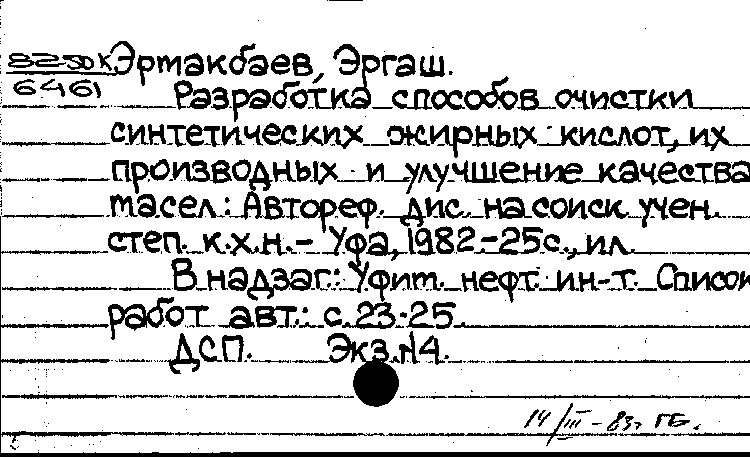 82-50К Эртакбаев, Эргаш.
6461
Разработка способов очистки
синтетических жирных кислот, их
производных и улучшение качества
масел: Автореф. дис. на соиск. учен.
степ. к.х.н.- Уфа, 1982.-25с., ил.
В надзаг.: Уфим. нефт. ин-т. Список
работ авт.: с.23-25.
ДСП. Экз.N4.
14/III-83г. ГБ.